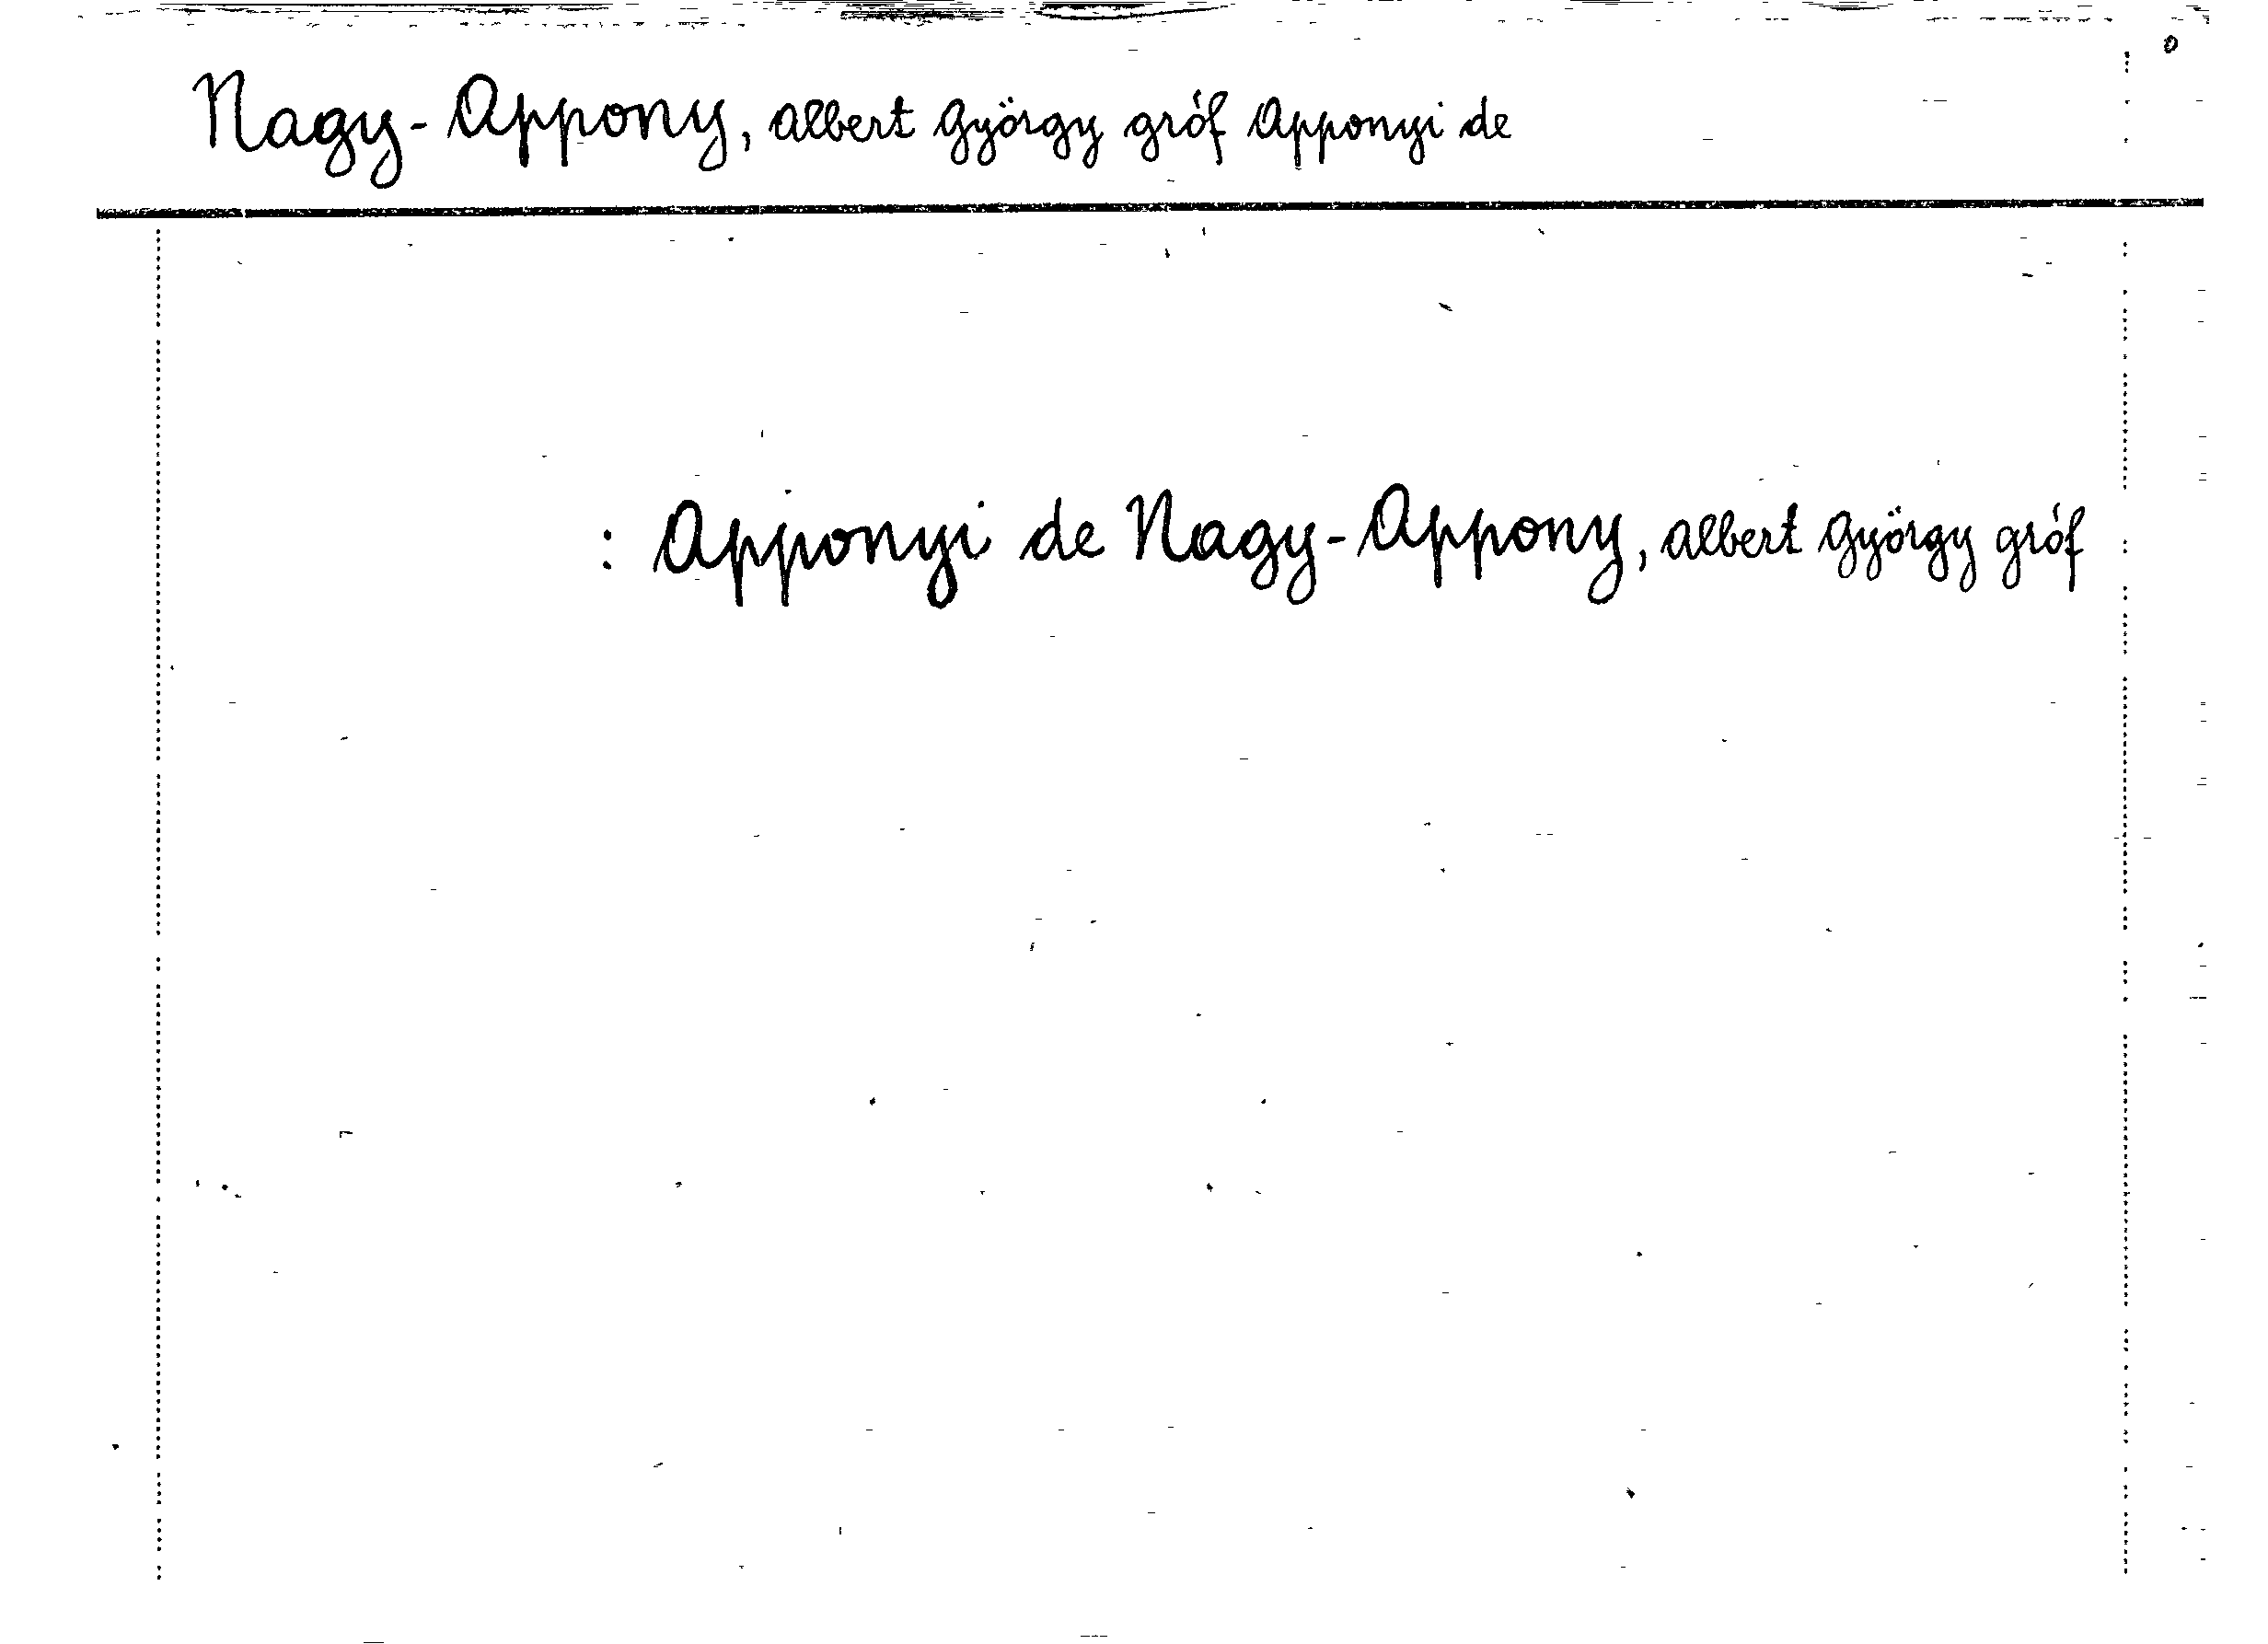 Nagy-Appony, Albert György gróf Apponyi de
: Apponyi de Nagy-Appony, Albert György gróf